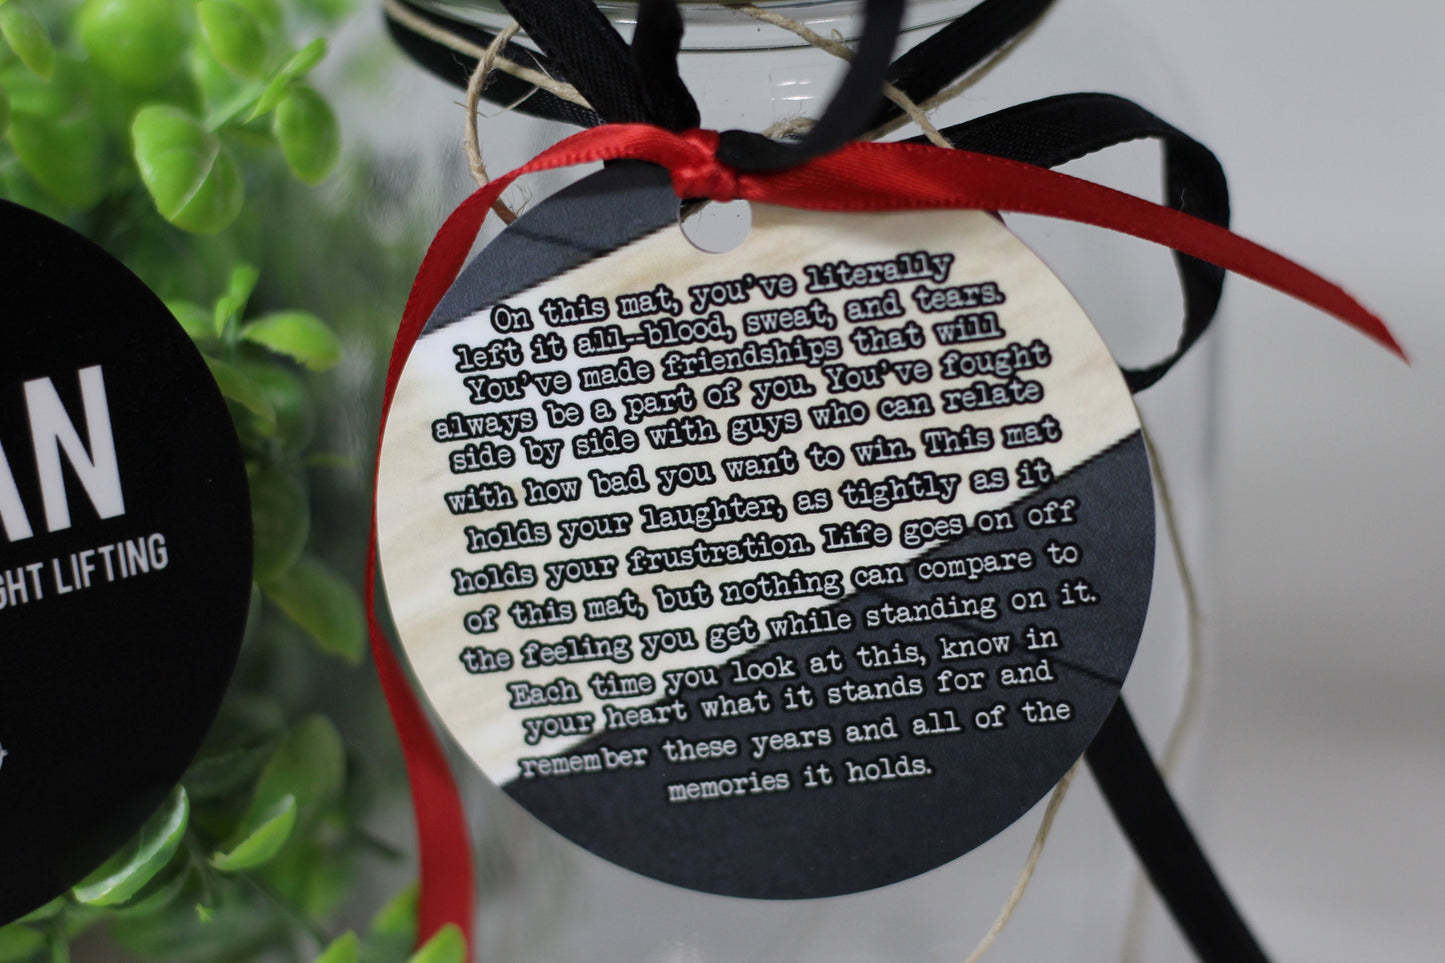 AN
GHT LIFTING
On this mat, you've literally
left it all--blood, sweat, and tears.
You've made friendships that will
always be a part of you. You've fought
side by side with guys who can relate
with how bad you want to win. This mat
holds your laughter, as tightly as it
holds your frustration. Life goes on off
of this mat, but nothing can compare to
the feeling you get while standing on it.
Each time you look at this, know in
your heart what it stands for and
remember these years and all of the
memories it holds.